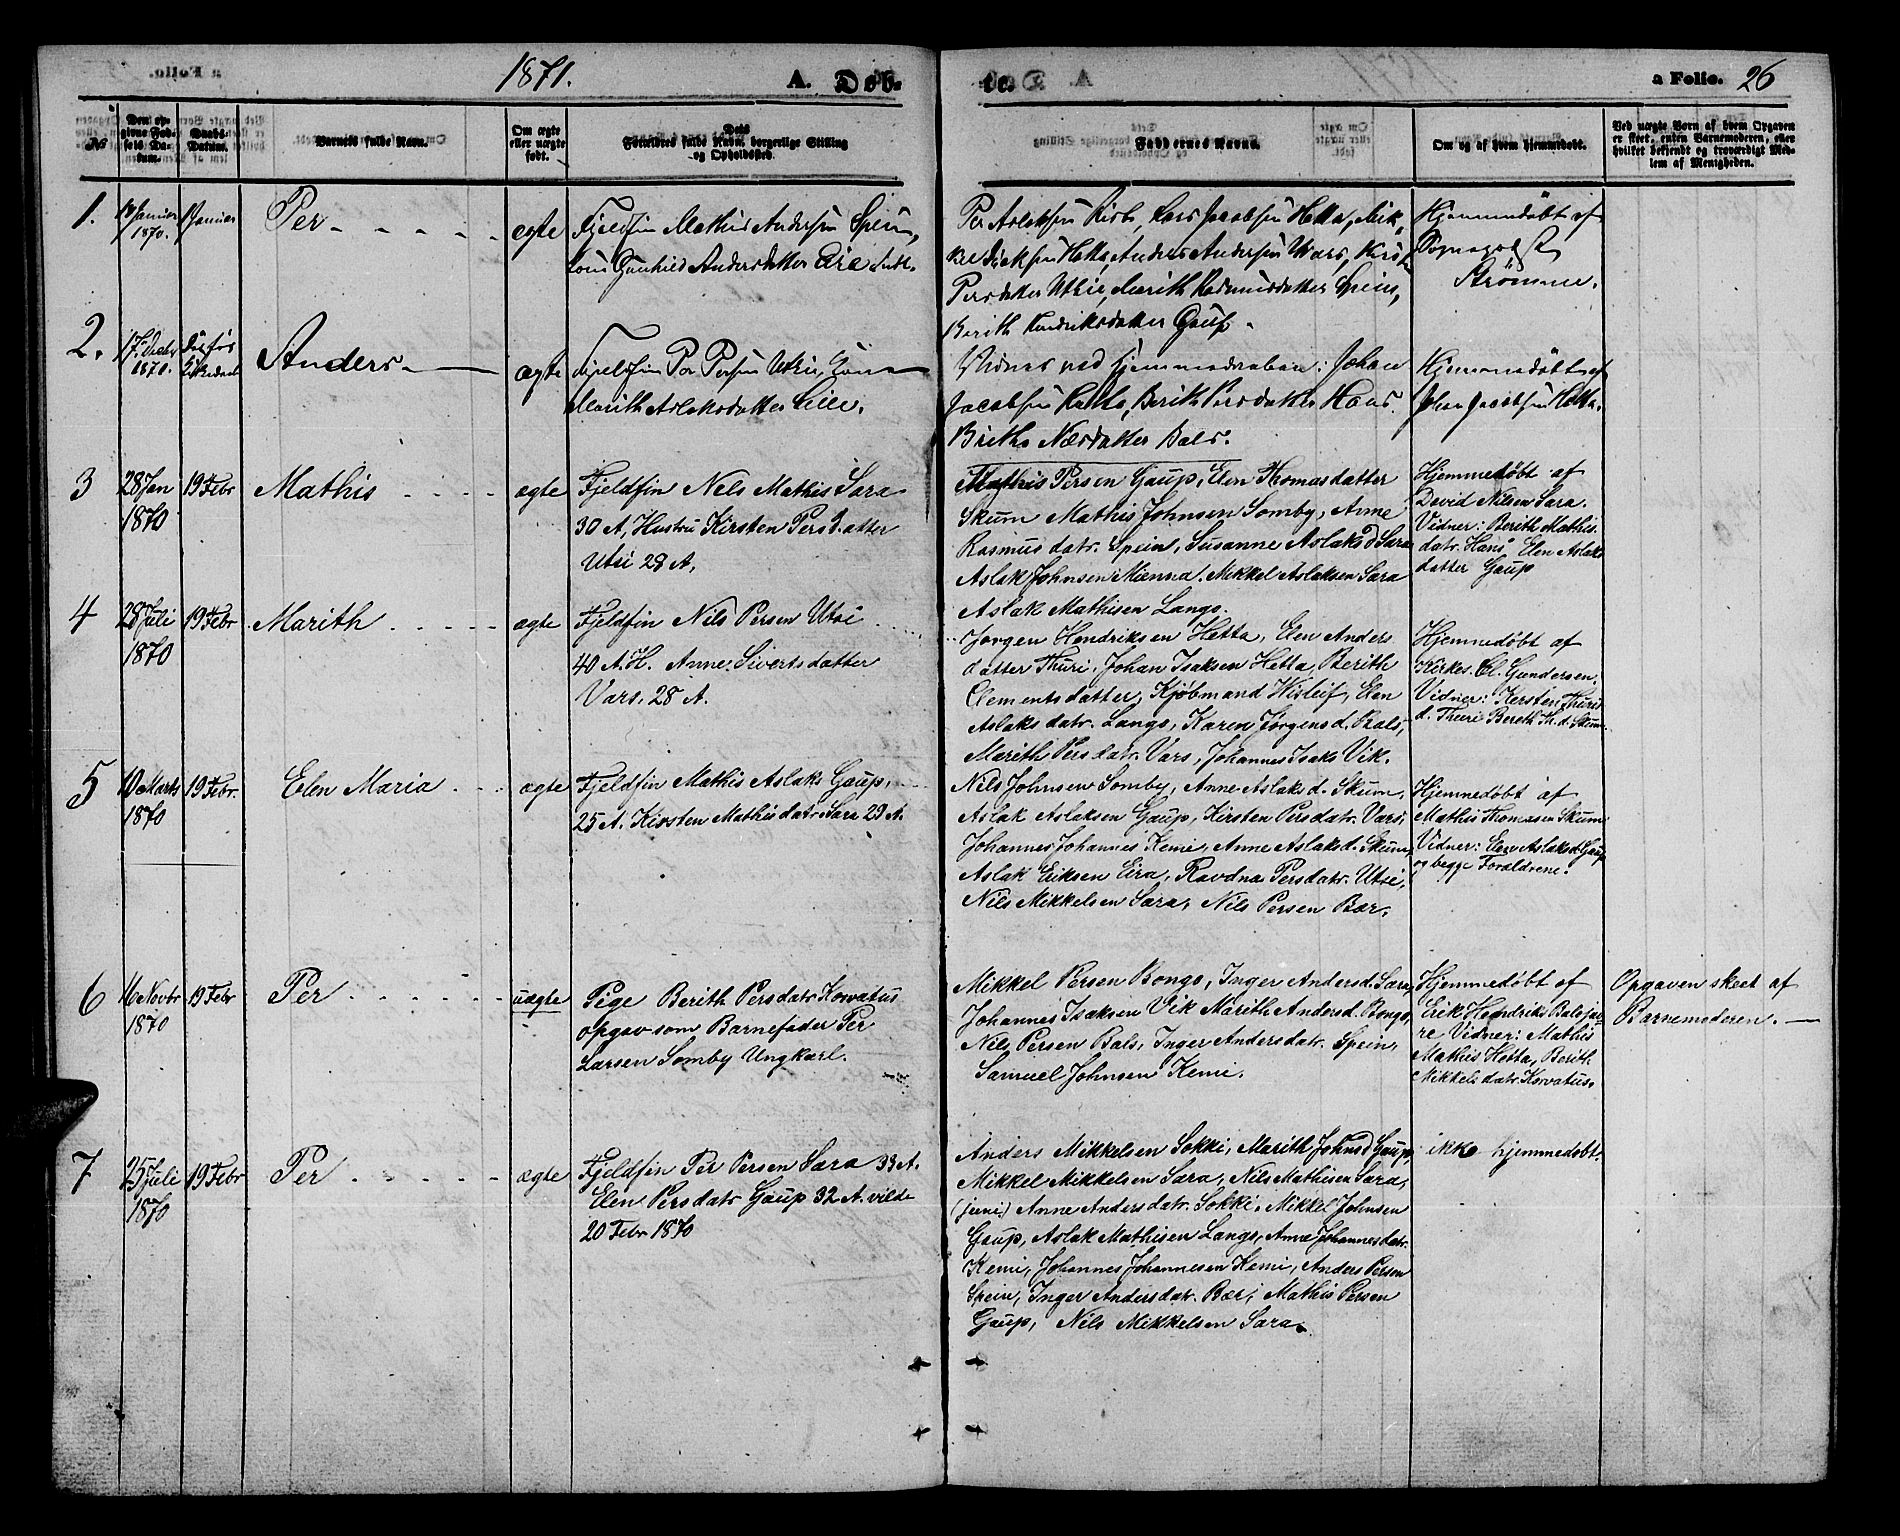 1871.
A. Døb-
te.
a Folio. 26
№
Den opgivne Fødsels Datum.
Daabs-Datum.
Barnets fulde Navn.
Om ægte eller uægte født.
Dets Forældres fulde Navn, borgerlige Stilling og Opholdssted.
Faddernes Navne.
Om og af hvem hjemmedøbt.
Ved uægte Børn af hvem Opgaven er skeet, enten Barnemoderen, eller hvilket bekjendt og troværdigt Medlem af Menigheden.
1.
Januar
1870.
Januar
Per
ægte
Fjeldfin Mathis Andersen Spein,
Gunhild Andersdatter Eira
Per Aslaksen
Lars Jacobsen Hetta, Mik-
kel Isaksen Hetta, Anders Andersen Vars,
Persdatter Utsi, Marith Rasmusdatter Spein,
Berith Hendriksdatter Gaup.
Hjemmedøbt af
Sognepræst
Strømme.
2.
17 Decbr
1870.
Anders
ægte
Fjeldfin Per Persen Utsi,
Marith Aslaksdatter
Vidner ved Hjemmedaaben: Johan
Jacobsen Hetta, Berith Persdatter
Berithe Nilsdatter Bals.
Hjemmedøbt af
Johan Jacobsen Hetta.
3
28 Jan
1870
19 Febr
Mathis
ægte
Fjeldfin Nels Mathis Sara
30 A, Hustru Kirsten Persdatter
Utsi 28 A,
Mathis Persen Gaup, Elen Thomasdatter
Skum Mathis Johnsen Somby, Anne
Rasmusdatr. Spein, Susanne Aslaksd Sara
Aslak Johnsen Mienna. Mikkel Aslaksen Sara
Aslak Mathisen Lango.
Hjemmedøbt af
David Nilsen Sara.
Vidner: Berith Mathis
datr. Hans Elen Aslaks
datter Gaup
4
28 Juli
1870
19 Febr
Marith
ægte
Fjeldfin Nils Persen Utsi
40 A. H. Anne Sivertsdatter
Vars. 28 A.
Jørgen Hendriksen Hetta, Elen Anders
datter Thuri, Johan Isaksen Hetta, Berith
Clementsdatter, Kjøbmand Wisleif, Elen
Aslaksdatr. Lango, Karen Jørgensd. Bals,
Marith Persdatr. Vars, Johannes Isaks Vik.
Hjemmedøbt af
Kirkes. Cl. Gundersen.
Vidner: Kersten Thuris
d. Thuri Bereth Th. d. Skum
5
10 Marts
1870
19 Febr.
Elen Maria
ægte
Fjeldfin Mathis Aslaks Gaup,
25 A. Kirsten Mathisdatr. Sara 29 A.
Nils Johnsen Somby, Anne Aslaksd. Skum,
Aslak Aslaksen Gaup, Kirsten Persdatr. Vars,
Johannes Johannis Kemi, Anne Aslaksd. Skum,
Aslak Eriksen Eira, Ravdna Persdatr. Utsi,
Nils Mikkelsen Sara, Nils Persen Bær,
Hjemmedøbt af
Mathis Thomasen Skum
Vidner: Elen Aslaksd. Gaup
og begge Forældrene.
6
16 Novbr
1870
19 Febr
Per
uægte
Pige Berith Persdatr Korvatus
opgav som Barnefader Per
Larsen Somby Ungkarl.
Mikkel Persen Bongo, Inger Andersd. Sara,
Johannes Isaksen Vik Marith Andersd. Bongo,
Nils Persen Bals, Inger Andersdatr. Spein,
Samuel Johnsen Kemi.
Hjemmedøbt af
Erik Hendriks Balojar
re Vidner: Mathis
Mathis Hetta, Berith
Mikkelsdatr. Korvatus.
Opgaven skeet af
Barnemoderen.
7
25 Juli
1870
19 Febr
Per
ægte
Fjeldfin Per Persen Sara 33 A.
Elen Persdatr Gaup 32 A. vilde
20 Febr 1870
Anders Mikkelsen Sokki, Marith Johnsd Gaup,
Mikkel Mikkelsen Sara, Nils Mathisen Sara,
(juni.) Anne Andersdatr. Sokki, Mikkel Johnsen
Gaup, Aslak Mathisen Lango, Anne Johannesdatr.
Kemi, Johannes Johannesen Kemi, Anders Persen
Spein, Inger Andersdatr. Bær, Mathis Persen
Gaup, Nils Mikkelsen Sara.
ikke hjemmedøbt.